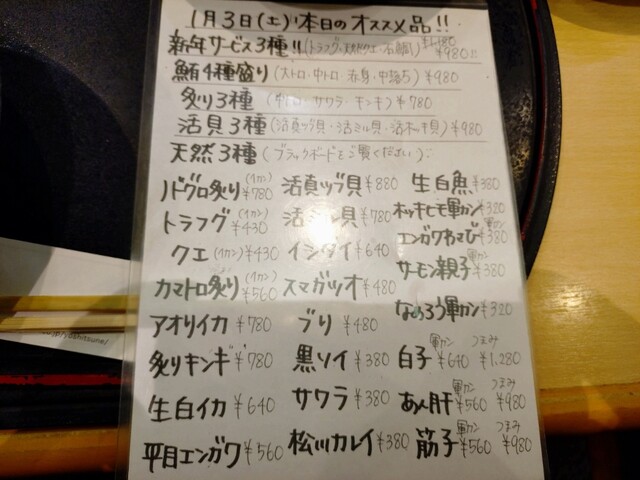 1月3日(土)本日のオススメ品!!
新年サービス3種!!(トラフグ・天然クエ・石鯛)¥1,180 ¥980!!
鮪4種盛り(大トロ・中トロ・赤身・中落ち)¥980
炙り3種(サワラ・キンキ)¥780
活貝3種(活真ツブ貝・活ミル貝・活ホッキ貝)¥980
天然3種(ブラックボードをご覧ください)
ノドグロ炙り(1カン)¥780 活真ツブ貝¥880 生白魚¥380
トラフグ(1カン)¥430 活ミル貝¥780 ホッキヒモ軍カン¥320
クエ(1カン)¥430 イシダイ¥640 エンガワわさび軍カン¥380
カマトロ炙り(1カン)¥560 スマガツオ¥480 サーモン親子軍カン¥380
アオリイカ¥780 ブリ¥480 なめろう軍カン¥320
炙りキンキ¥780 黒ソイ¥380 白子 軍カン¥640 つまみ¥1,280
生白イカ¥640 サワラ¥380 あん肝 軍カン¥560 つまみ¥980
平目エンガワ¥560 松川カレイ¥380 筋子 軍カン¥560 つまみ¥980
/yoshitsune/